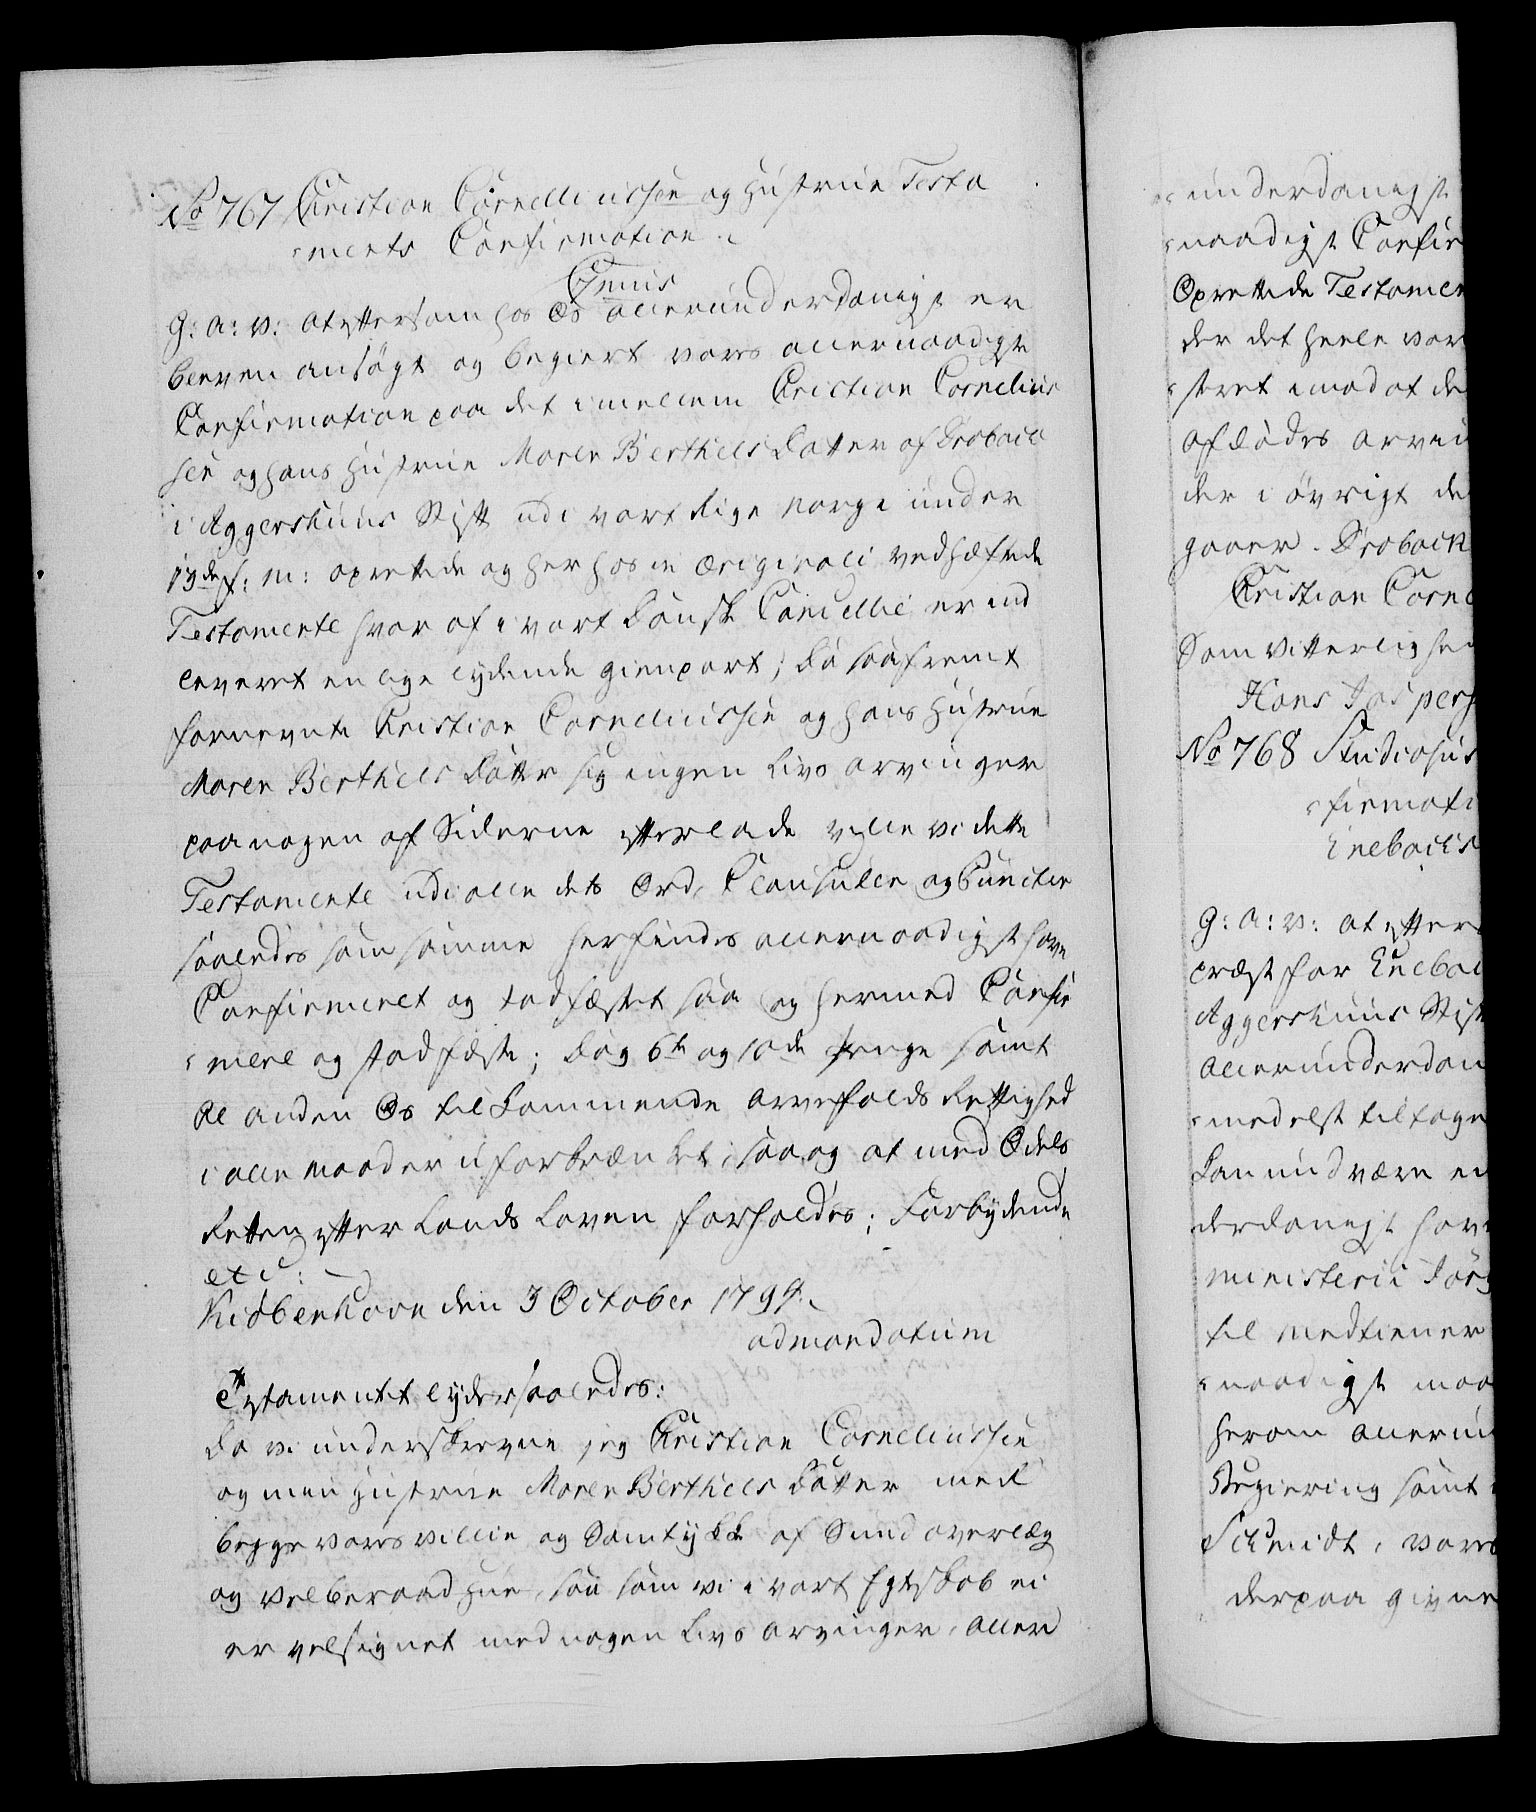 No 767 Christian Cornelliussen og Hustrue Testa
ments Confirmation.
Genus
G: A: V: at eftersom hos Os allerunderdanigst er
bleven ansøgt og begiert vores allernaadigste
Confirmation paa det imellem Christian Cornelius
sen og hans Hustrue Maren Berthels Datter af Drøback
i Aggershuus Stift udi vort Rige Norge under
13de f: M: oprettede og her hos in originali vedhæftede
Testamente hvor af i vort Danske Cancellie er ind
leveret en lige lydende Gienpart; Da saafremt
fornevnte Christian Corneliussen og hans Hustrue
Maren Berthels Datter sig ingen Livs Arvinger
paa nogen af Siderne efterlade ville vi dette
Testamente udi alle dets Ord, Clausuler og Puncter
saaledes som samme herfindes allernaadigst have
Confirmeret og stadfæstet saa og hermed Confir
mere og stadfæste; Dog 6te og 10de Penge samt
al anden Os tilkommende Arvefalds Rettighed
i alle Maader uforkrænket, saa og at med Odels
Retten efter Lands Loven forholdes; Forbydende
etc:
Kiøbenhavn den 3 October 1794.
ad mandatum
Testamentet lyder saaledes:
Da vi underskrevne jeg Christian Corneliussen
og min Hustrue Maren Berthels Datter med
begge vores Villie og Samtykke af Sund overlæg
og velberaad Hue, saa som vi i vort Egteskab ei
er velsignet med nogen Livs Arvinger, aller
underdanigst
naadigst Confir
Oprettede Testamen
der det heele vor
stret imod at de
afdødes Arvi
der i øvrigt de
gaaer. Drøbach
Christian Corne
Som Vitterlighed
Hans Jespers
No 768 Studiosus
firmati
Enebachs
G: A: V: at efters
Præst for Enebac
Aggershuus Stift
allerunderdan
medelst tiltage
Kan undvære en
derdanigst have
ministerii Jørg
til Medtiener
naadigst maa
herom allerun
Regiering samt
Schmidt, vores
derpaa givne